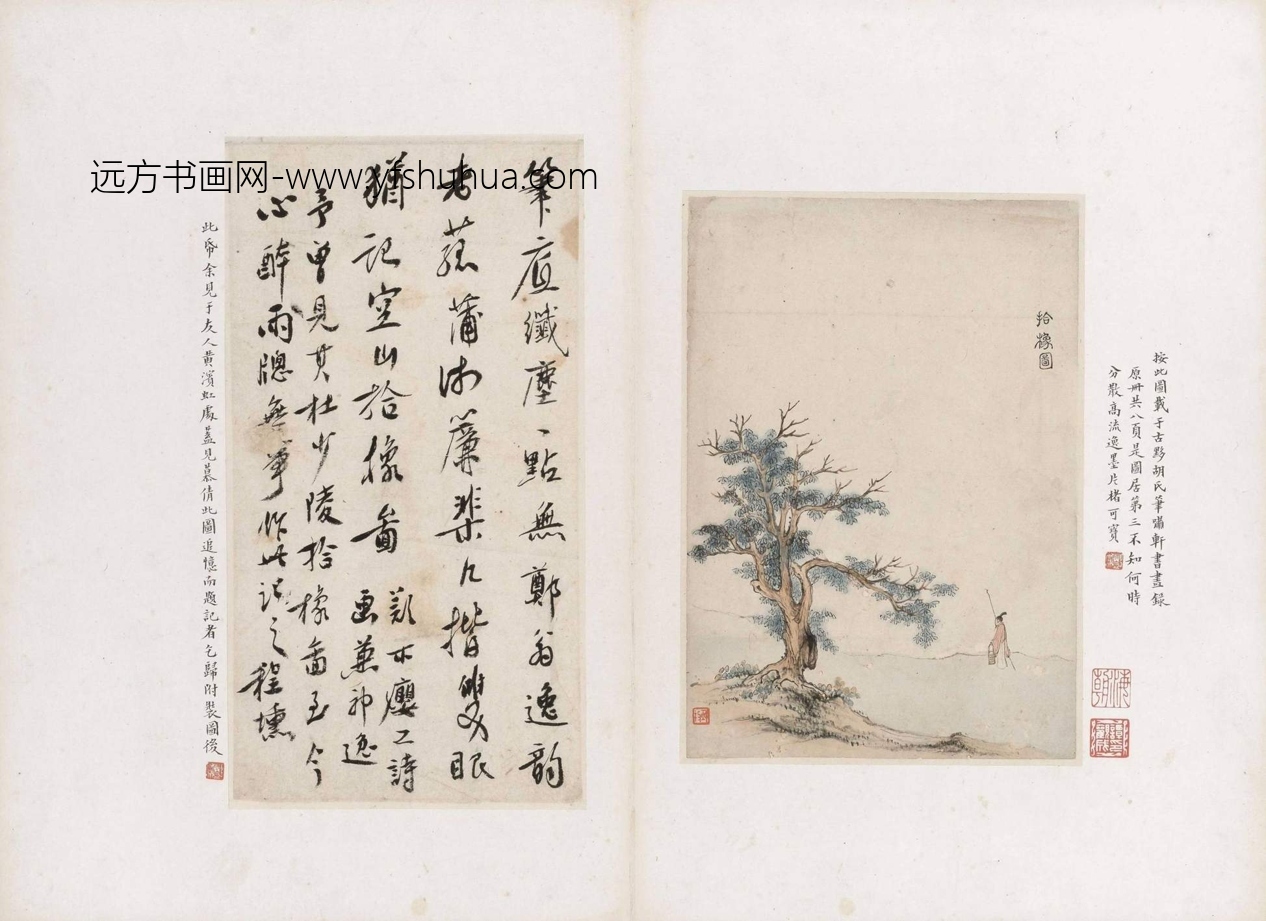 远方书画网-www.yfshuhua.com
按此圖載于古黟胡氏筆嘯軒書畫録
原册共八頁是圖居第三不知何時
分散高流逸墨片楮可寶
拾橡圖
筆底纖塵一點無鄭翁逸韻
蒲簾棐几揩雙眼
猶記空山拾橡圖
鄭木癭工詩
画兼神逸
予曾見其杜少陵拾橡圖至今
心醉雨牕無事作此誌之程壎
此帋余見于友人黄濱虹處蓋見慕倩此圖追憶而題記者乞歸附裝圖後